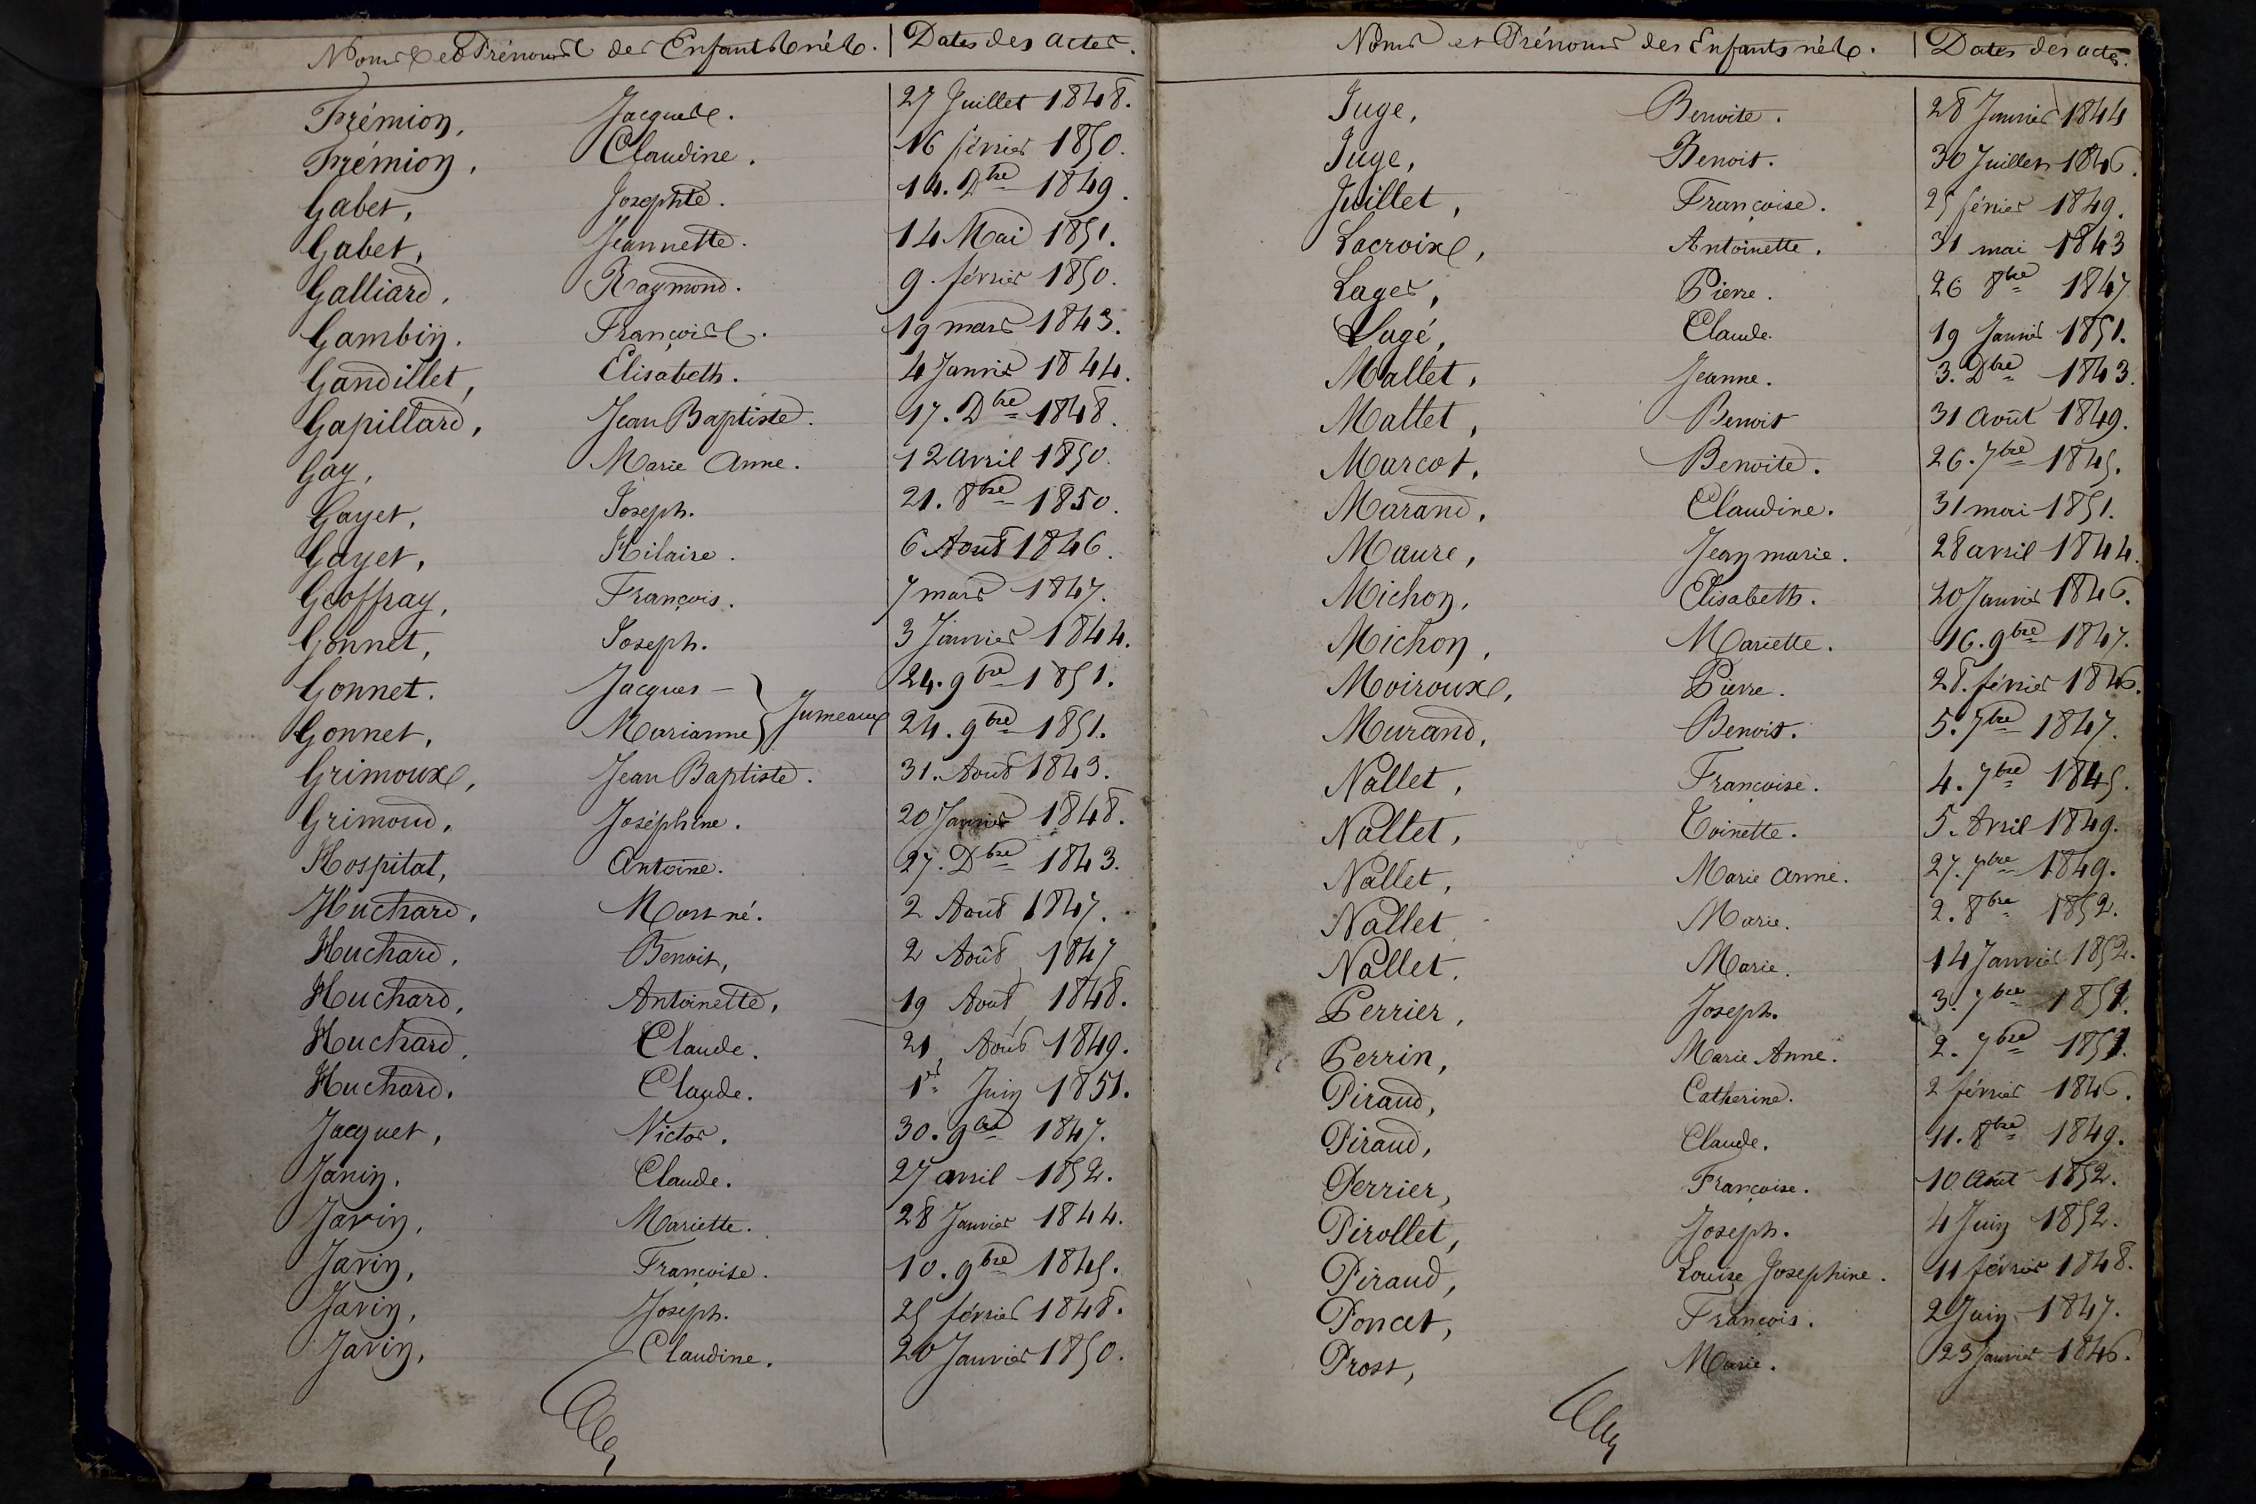 Noms et Prénoms des Enfants nés. Dates des actes.
Frémion, Jacques. 27 Juillet 1848.
Frémion, Claudine. 16 février 1850.
Gabet, Josephte. 14. Dbre 1849.
Gabet, Jeannette. 14 Mai 1851.
Galliard, Raymond. 9. février 1850.
Gambin. François. 19 mars 1843.
Gandillet, Elisabeth. 4 Janvier 1844.
Gapillard, Jean Baptiste. 17. Dbre 1848.
Gay, Marie Anne. 12 avril 1850.
Gayet, Joseph. 21. 8bre 1850.
Gayet, Hilaire. 6 Août 1846.
Geoffray, François. 7 mars 1847.
Gonnet, Joseph. 3 Janvier 1844.
Gonnet. Jacques – 24. 9bre 1851.
Jumeaux
Gonnet, Marianne 24. 9bre 1851.
Grimoux, Jean Baptiste. 31. Août 1843.
Grimoud, Joséphine. 20 Janvier 1848.
Hospital, Antoine. 27. Dbre 1843.
Huchard, Mort né. 2 Août 1847.
Huchard, Benoit, 2 Août 1847
Huchard, Antoinette, 19 Août 1848.
Huchard, Claude. 21 Août 1849.
Huchard. Claude. 1er Juin 1851.
Jacquet, Victor. 30. 9bre 1847.
Janin, Claude. 27 avril 1852.
Javin, Mariette. 28 Janvier 1844.
Javin, Françoise. 10. 9bre 1845.
Javin, Joseph. 25 février 1848.
Javin, Claudine. 20 Janvier 1850.
Noms et Prénoms des Enfants nés. Dates des actes.
Juge, Benoite. 28 Janvier 1844
Juge, Benoit. 30 Juillet 1846.
Juillet, Françoise. 25 février 1849.
Lacroix, Antoinette. 31 mai 1843
Lager, Pierre. 26 8bre 1847
Lugé, Claude. 19 Janvier 1851.
Mallet, Jeanne. 3. Dbre 1843.
Mallet, Benoit 31 Août 1849.
Marcot, Benoite. 26. 7bre 1845.
Marand, Claudine. 31 mai 1851.
Maure, Jean marie. 28 avril 1844.
Michon, Elisabeth. 20 Janvier 1846.
Michon, Mariette. 16. 9bre 1847.
Moiroux, Pierre. 28. février 1846.
Murand, Benoit. 5. 7bre 1847.
Nallet, Françoise. 4. 7bre 1845.
Nallet, Toinette. 5. Avril 1849.
Nallet, Marie Anne. 27. 7bre 1849.
Nallet Marie. 2. 8bre 1852.
Nallet. Marie. 14 Janvier 1852.
Perrier, Joseph. 3. 7bre 1851.
Perrin, Marie Anne. 2. 7bre 1851.
Piraud, Catherine. 2 février 1846.
Piraud, Claude. 11. 8bre 1849.
Perrier, Françoise. 10 Août 1852.
Pirollet, Joseph. 4 Juin 1852.
Piraud, Louise Josephine. 11 février 1848.
Poncet, François. 2 Juin 1847.
Prost, Marie. 23 Janvier 1846.